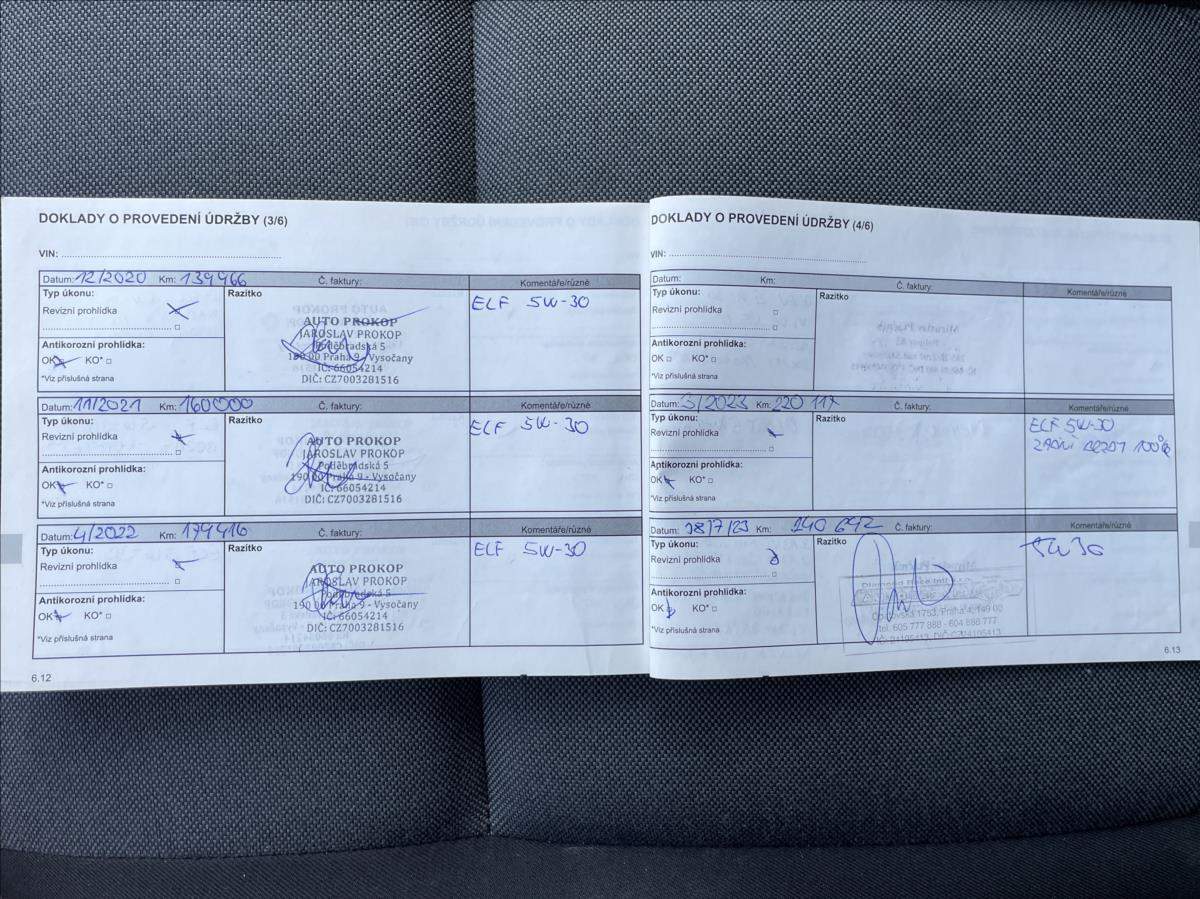 DOKLADY O PROVEDENÍ ÚDRŽBY (3/6)
VIN:
Datum: 12/2020 Km: 139466 Č. faktury: Komentáře/různé
Typ úkonu: Razítko ELF 5W-30
Revizní prohlídka
AUTO PROKOP
JAROSLAV PROKOP
Poděbradská 5
190 00 Praha 9 - Vysočany
IČ: 66054214
DIČ: CZ7003281516
Antikorozní prohlídka:
OK KO*
*Viz příslušná strana
Datum: 11/2021 Km: 160000 Č. faktury: Komentáře/různé
Typ úkonu: Razítko ELF 5W-30
Revizní prohlídka
AUTO PROKOP
JAROSLAV PROKOP
Poděbradská 5
190 00 Praha 9 - Vysočany
IČ: 66054214
DIČ: CZ7003281516
Antikorozní prohlídka:
OK KO*
*Viz příslušná strana
Datum: 4/2022 Km: 179416 Č. faktury: Komentáře/různé
Typ úkonu: Razítko ELF 5W-30
Revizní prohlídka
AUTO PROKOP
JAROSLAV PROKOP
Poděbradská 5
190 00 Praha 9 - Vysočany
IČ: 66054214
DIČ: CZ7003281516
Antikorozní prohlídka:
OK KO*
*Viz příslušná strana
6.12
DOKLADY O PROVEDENÍ ÚDRŽBY (4/6)
VIN:
Datum: Km: Č. faktury: Komentáře/různé
Typ úkonu: Razítko
Revizní prohlídka
Antikorozní prohlídka:
OK KO*
*Viz příslušná strana
Datum: 3/2023 Km: 220 117 Č. faktury: Komentáře/různé
Typ úkonu: Razítko ELF 5W-30
Revizní prohlídka
ZADNÍ 100%
Antikorozní prohlídka:
OK KO*
*Viz příslušná strana
Datum: 18/7/23 Km: 240 642 Č. faktury: Komentáře/různé
Typ úkonu: Razítko 5W30
Revizní prohlídka
1753, Praha 4, 149 00
tel. 605 777 888 - 604 888 777
Antikorozní prohlídka:
OK KO*
*Viz příslušná strana
6.13